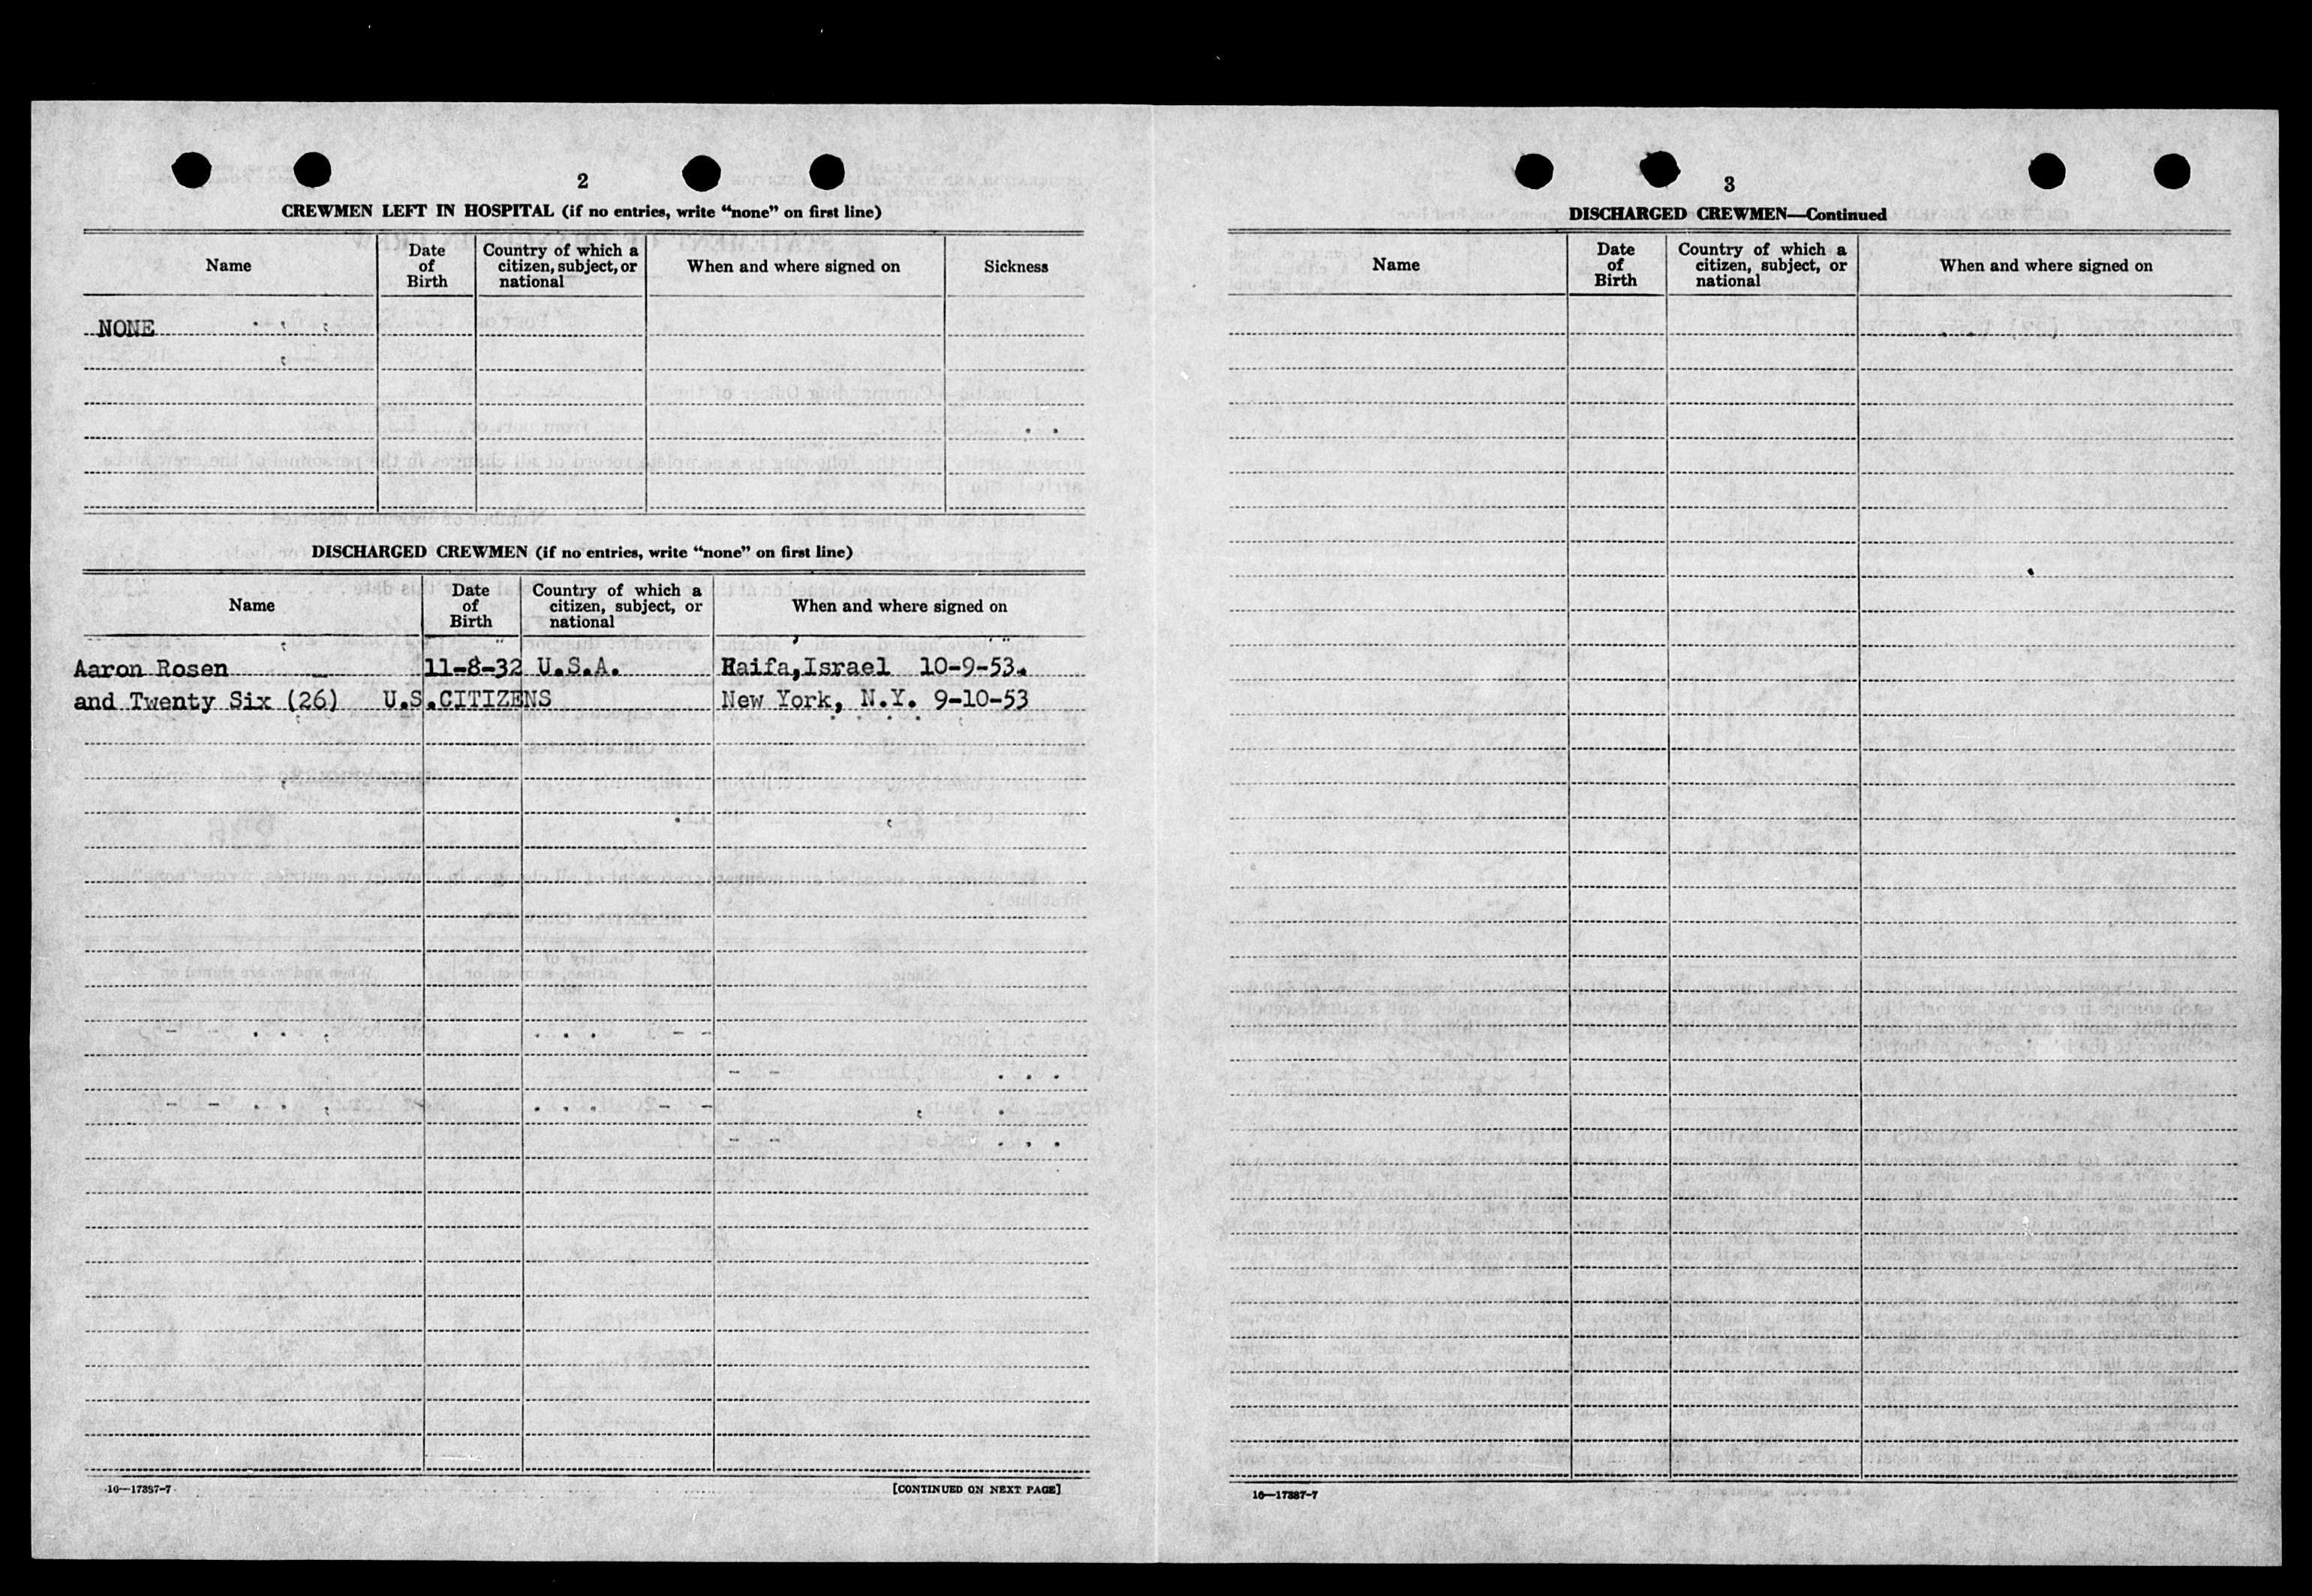 2
CREWMEN LEFT IN HOSPITAL (if no entries, write "none" on first line)
Name
Date of Birth
Country of which a citizen, subject, or national
When and where signed on
Sickness
NONE
DISCHARGED CREWMEN (if no entries, write "none" on first line)
Name
Date of Birth
Country of which a citizen, subject, or national
When and where signed on
Aaron Rosen 11-8-32 U.S.A. Haifa,Israel 10-9-53.
and Twenty Six (26) U.S.CITIZENS New York, N.Y. 9-10-53
16—17387-7
[CONTINUED ON NEXT PAGE]
3
DISCHARGED CREWMEN—Continued
Name
Date of Birth
Country of which a citizen, subject, or national
When and where signed on
16—17387-7